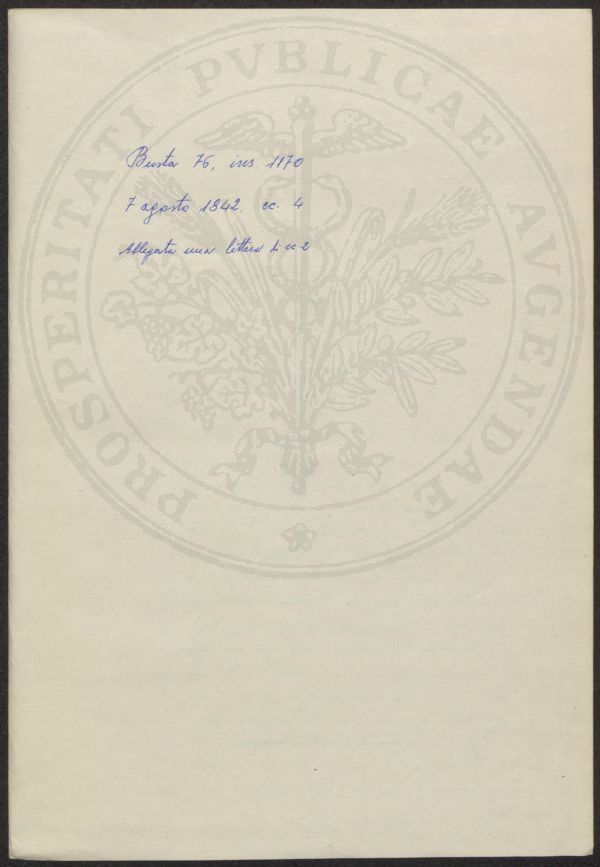 PROSPERITATI PVBLICAE AVGENDAE
Busta 76, ins. 1170
7 agosto 1842, cc. 4
Allegata una lettera di cc 2